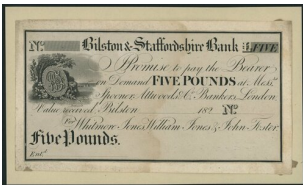 No. Bilston & Staffordshire Bank £ FIVE
I Promise to pay the Bearer
on Demand FIVE POUNDS at Messrs.
Spooner Attwoods & Co. Bankers, London
Value received Bilston 182 No.
For Whitmore Jones, William Jones & John Foster.
Five Pounds.
Entd.